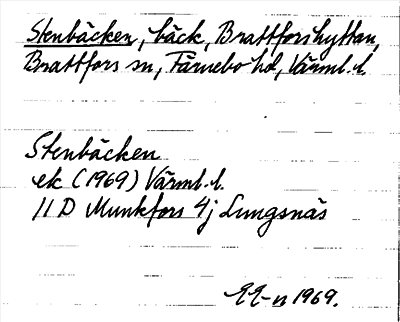 Stenbäcken, bäck, Brattforshyttan,
Brattfors sn, Färnebo hd, Värml. l.
Stenbäcken
ek (1969) Värml. l.
11 D Munkfors 4j Lungsnäs
1969.